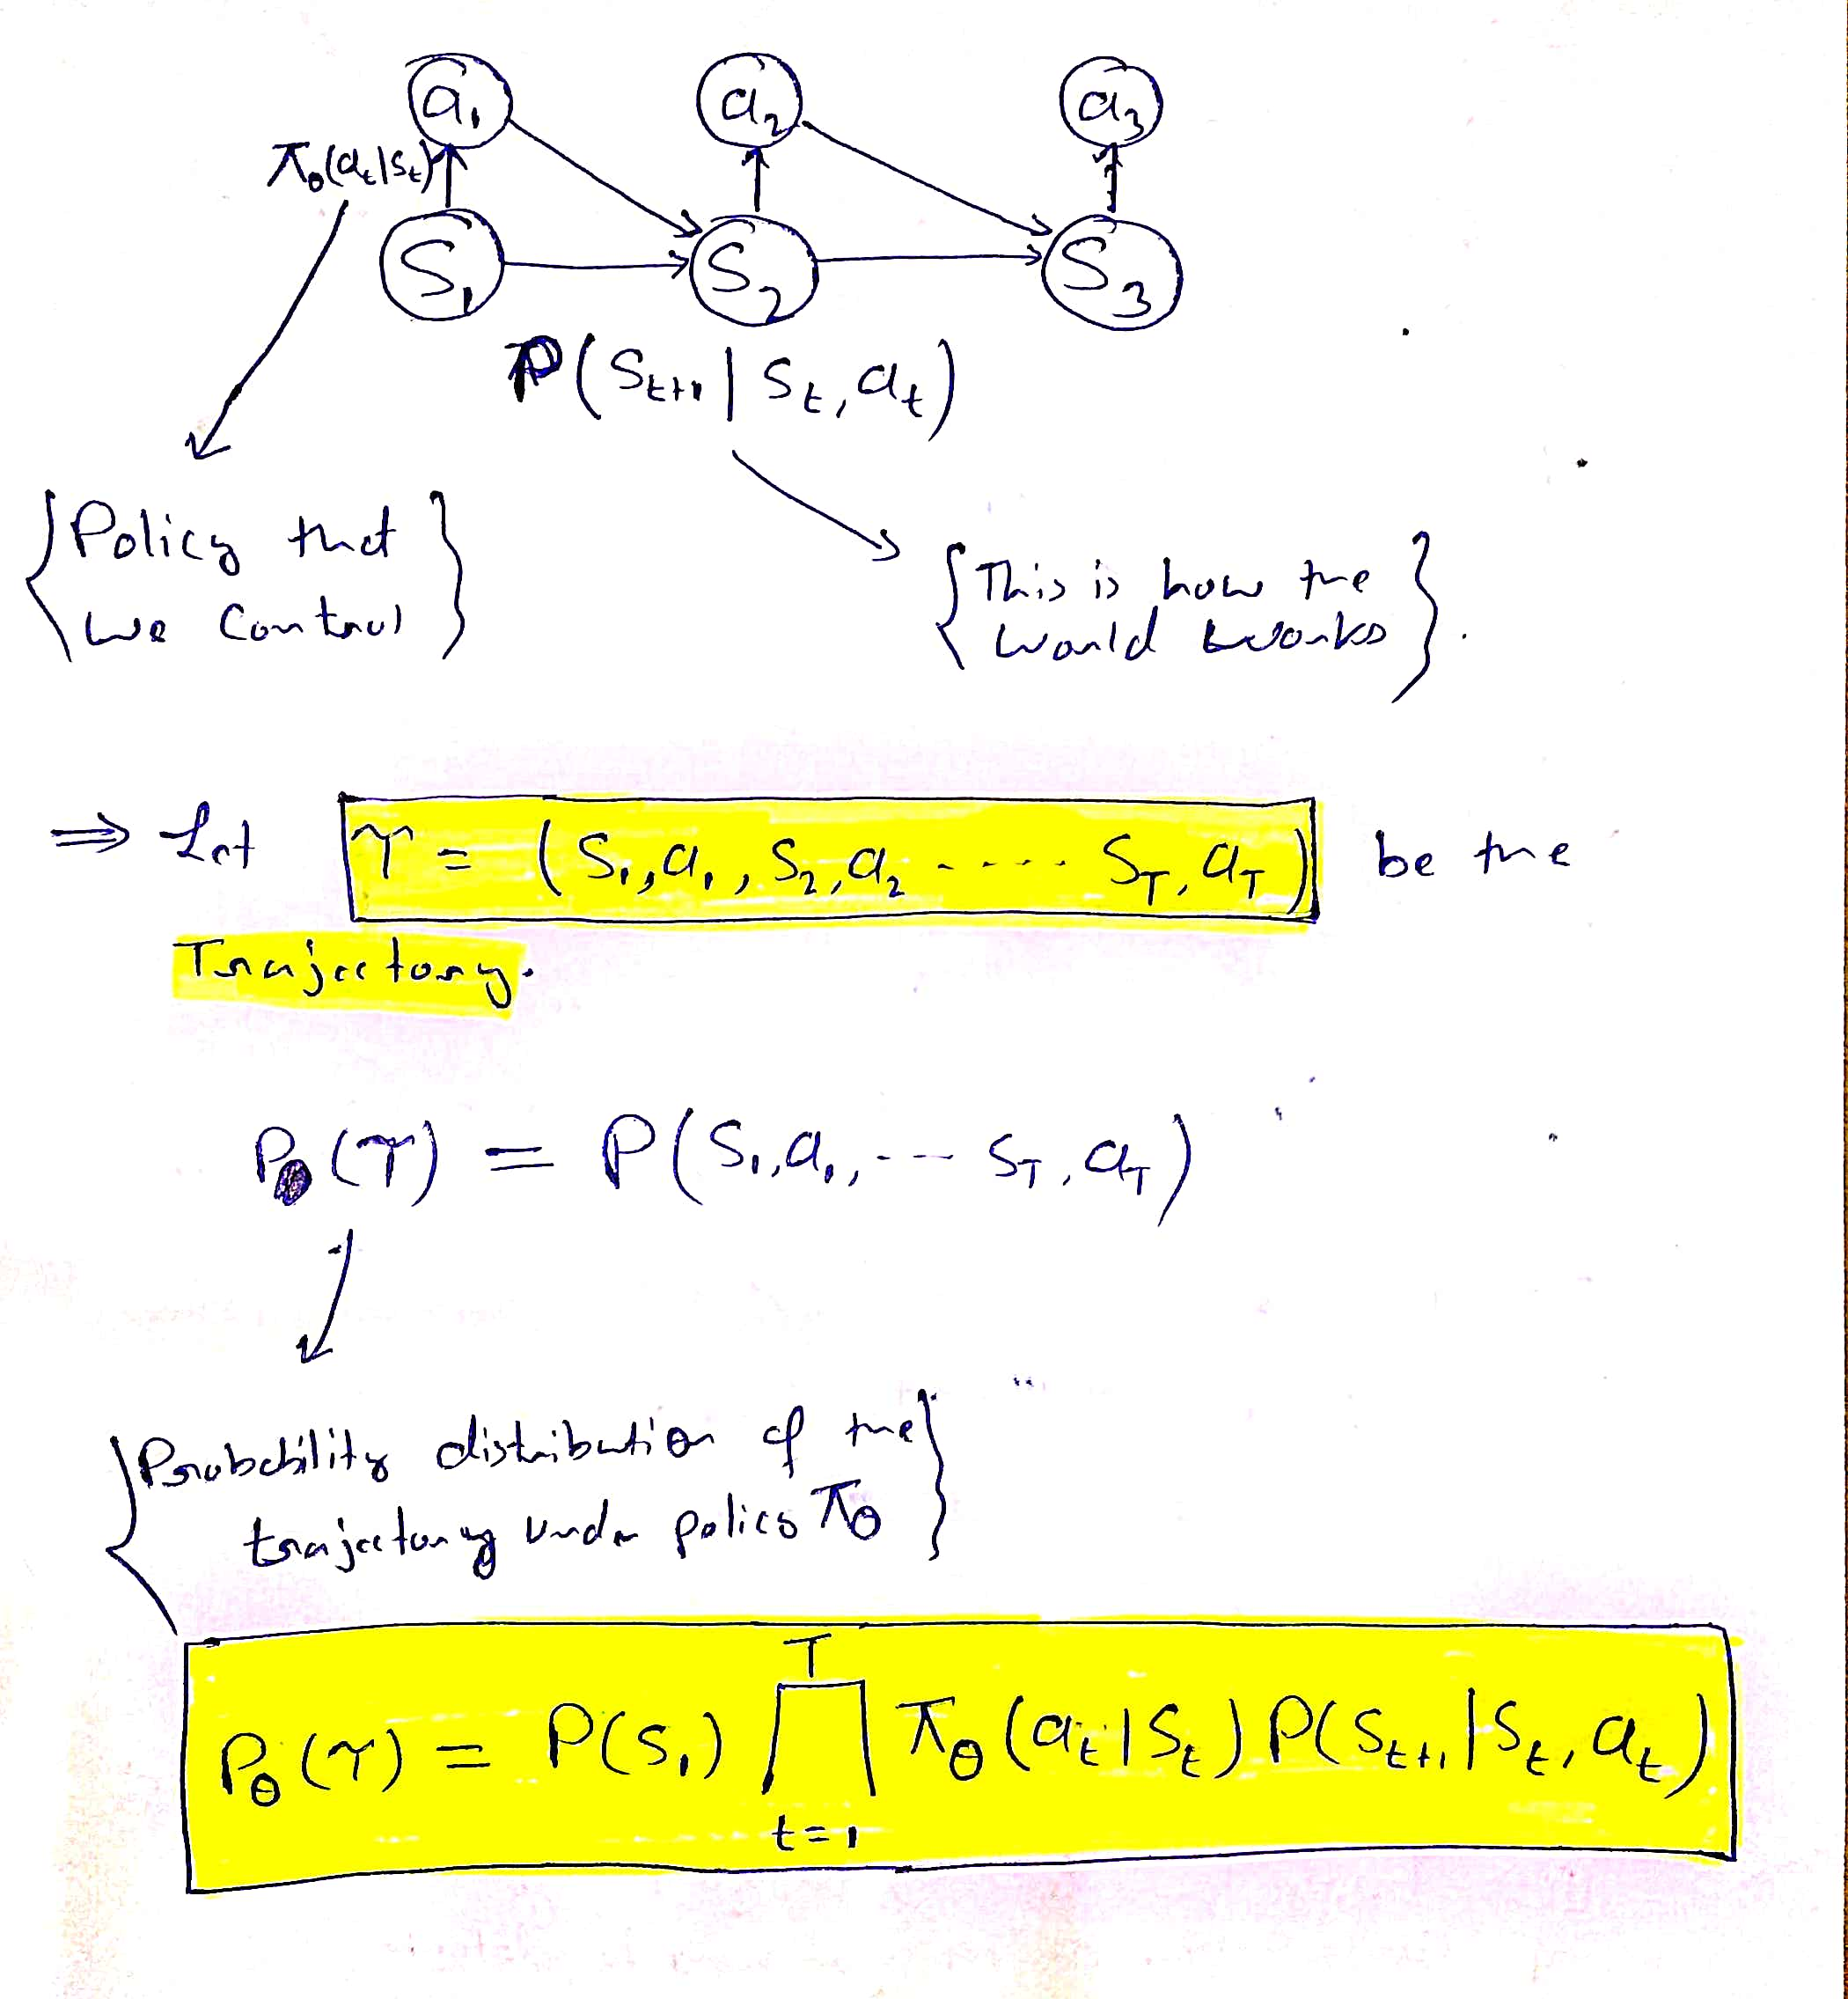 a₁ a₂ a₃
π_θ(a_t|s_t)
S₁ S₂ S₃
P(S_{t+1} | S_t, a_t)
{Policy that
we control}
{This is how the
world works}.
⇒ Let τ = (S₁, a₁, S₂, a₂ ----- S_T, a_T) be the
Trajectory.
P_θ(τ) = P(S₁, a₁, --- S_T, a_T)
{Probability distribution of the
trajectory under policy π_θ}
P_θ(τ) = P(S₁) ∏_{t=1}^{T} π_θ(a_t|S_t) P(S_{t+1}|S_t, a_t)